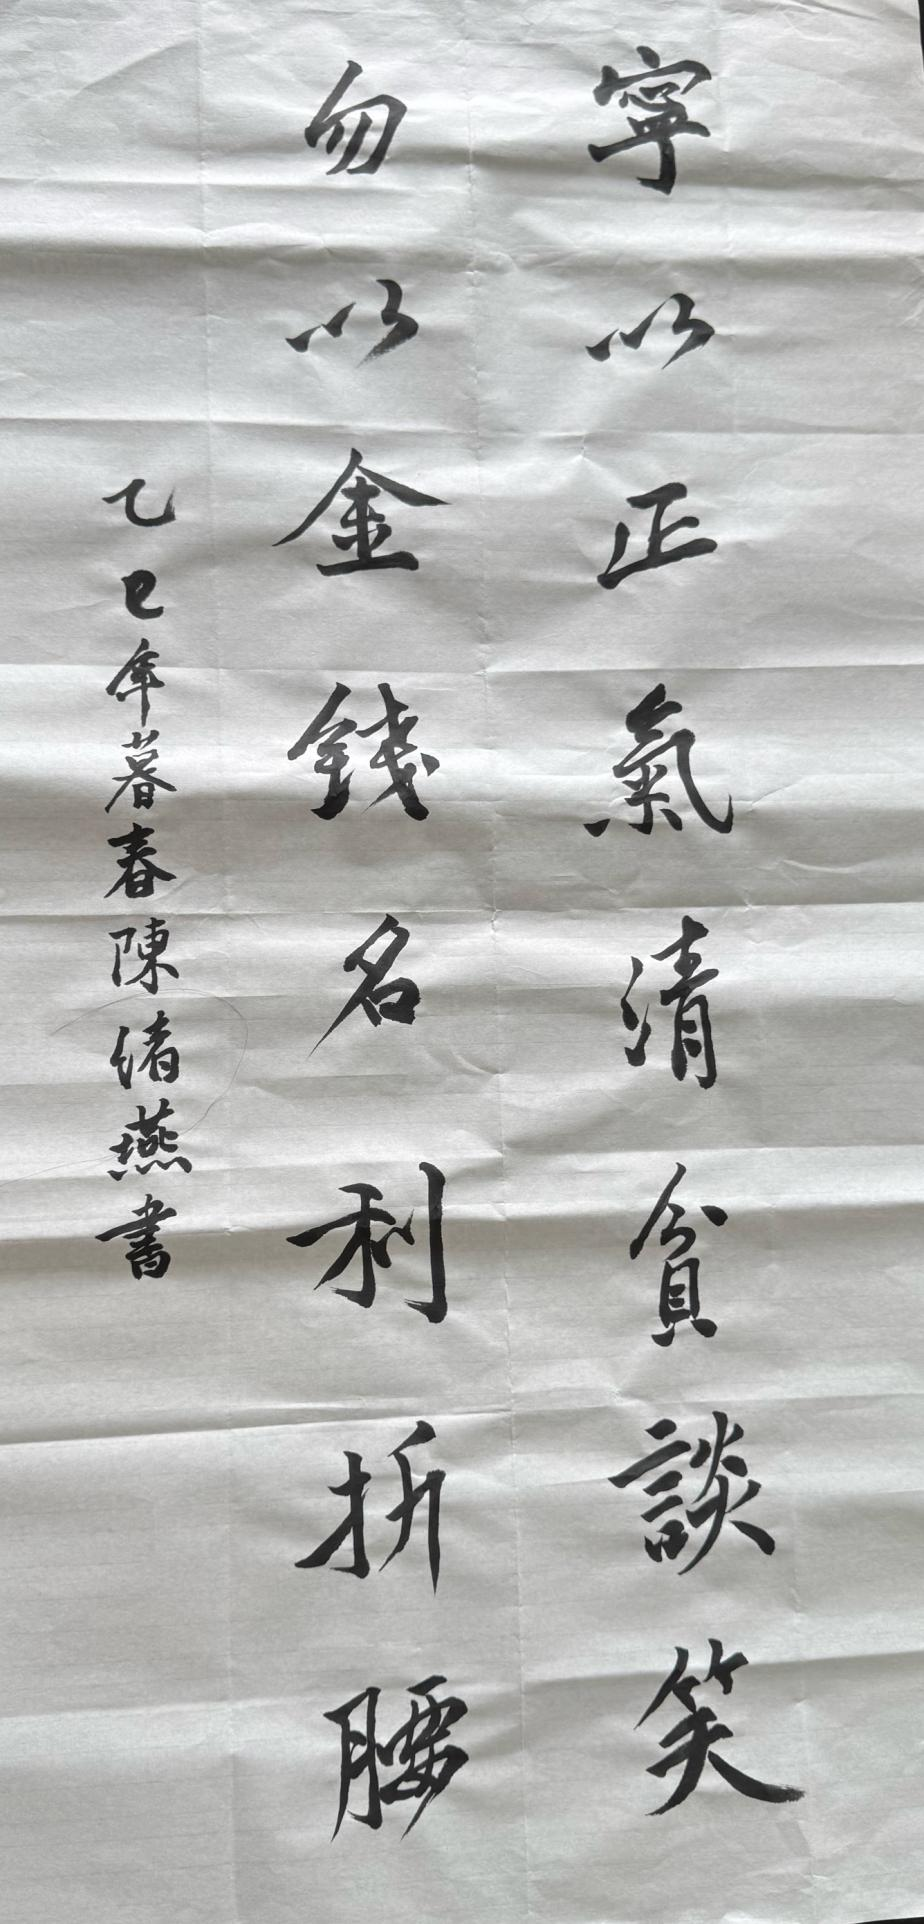 寧以正氣清貧談笑
勿以金錢名利折腰
乙巳年暮春陳緒燕書